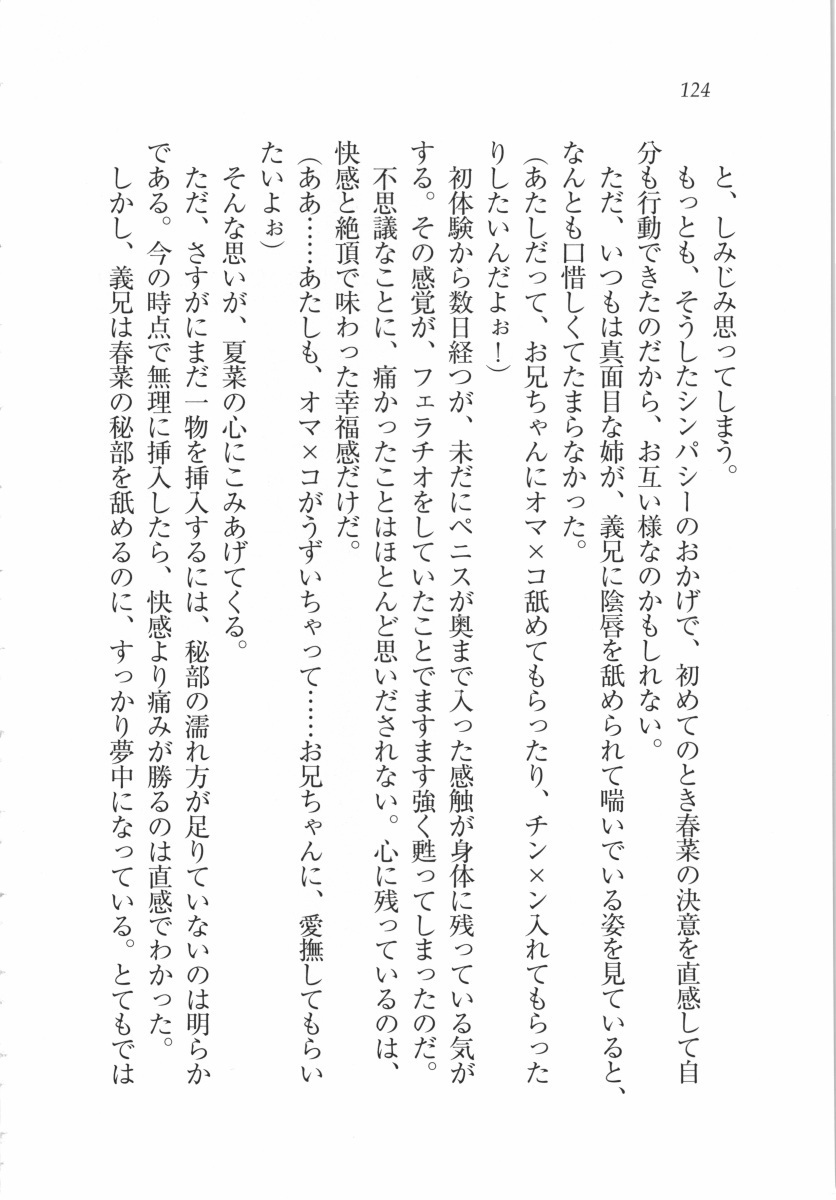 124
と、しみじみ思ってしまう。
もっとも、そうしたシンパシーのおかげで、初めてのとき春菜の決意を直感して自
分も行動できたのだから、お互い様なのかもしれない。
ただ、いつもは真面目な姉が、義兄に陰唇を舐められて喘いでいる姿を見ていると、
なんとも口惜しくてたまらなかった。
(あたしだって、お兄ちゃんにオマ×コ舐めてもらったり、チン×ン入れてもらった
りしたいんだよぉ！)
初体験から数日経つが、未だにペニスが奥まで入った感触が身体に残っている気が
する。その感覚が、フェラチオをしていたことでますます強く甦ってしまったのだ。
不思議なことに、痛かったことはほとんど思いだされない。心に残っているのは、
快感と絶頂で味わった幸福感だけだ。
(ああ……あたしも、オマ×コがうずいちゃって……お兄ちゃんに、愛撫してもらい
たいよぉ)
そんな思いが、夏菜の心にこみあげてくる。
ただ、さすがにまだ一物を挿入するには、秘部の濡れ方が足りていないのは明らか
である。今の時点で無理に挿入したら、快感より痛みが勝るのは直感でわかった。
しかし、義兄は春菜の秘部を舐めるのに、すっかり夢中になっている。とてもでは